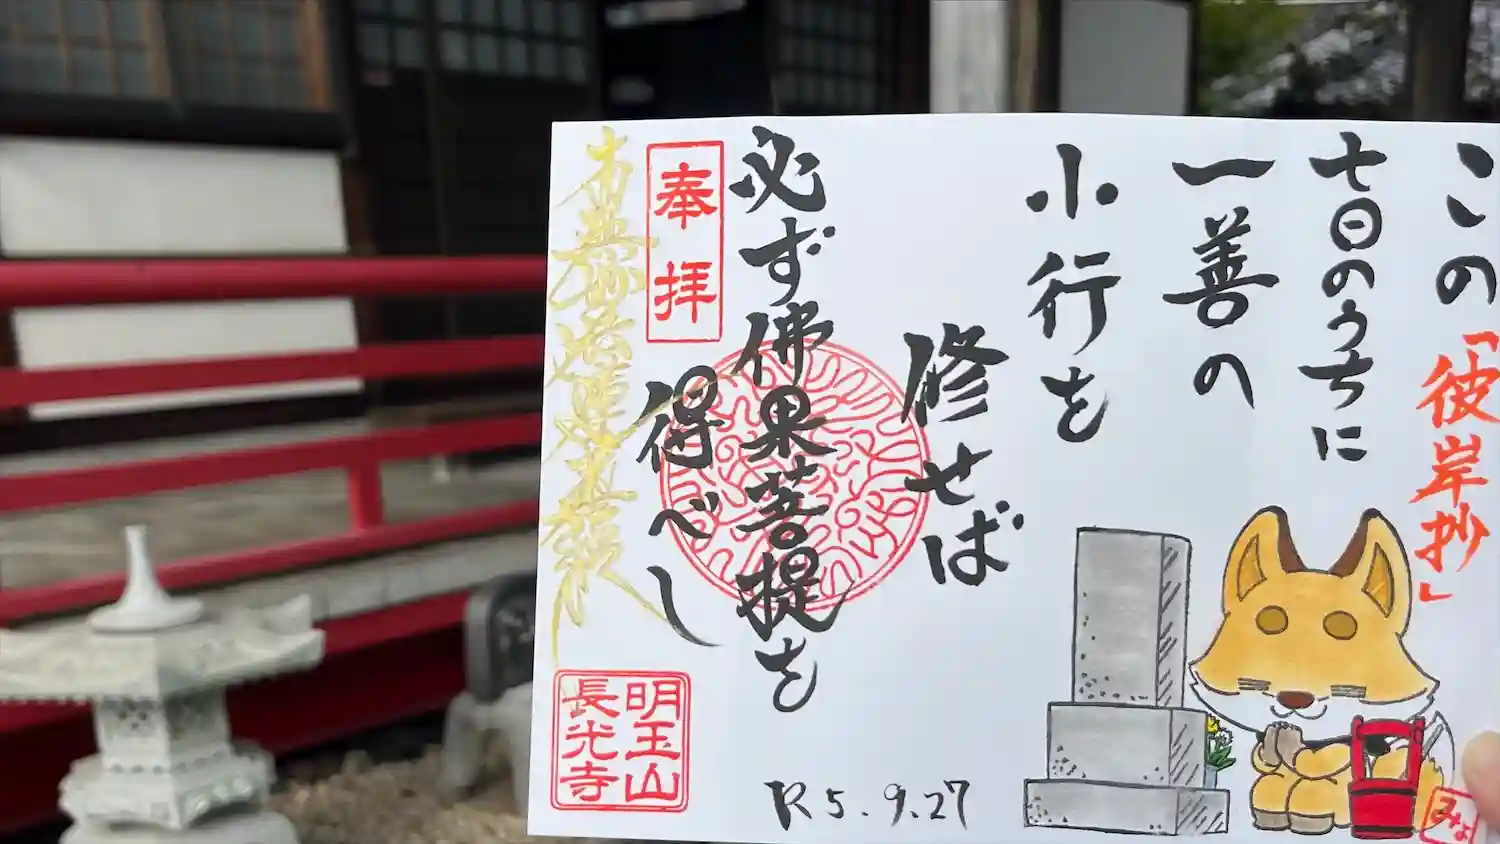 この「彼岸抄」
七日のうちに
一善の
小行を
修せば
必ず佛果菩提を
得べし
奉拝
明玉山
長光寺
R5.9.27
みよ